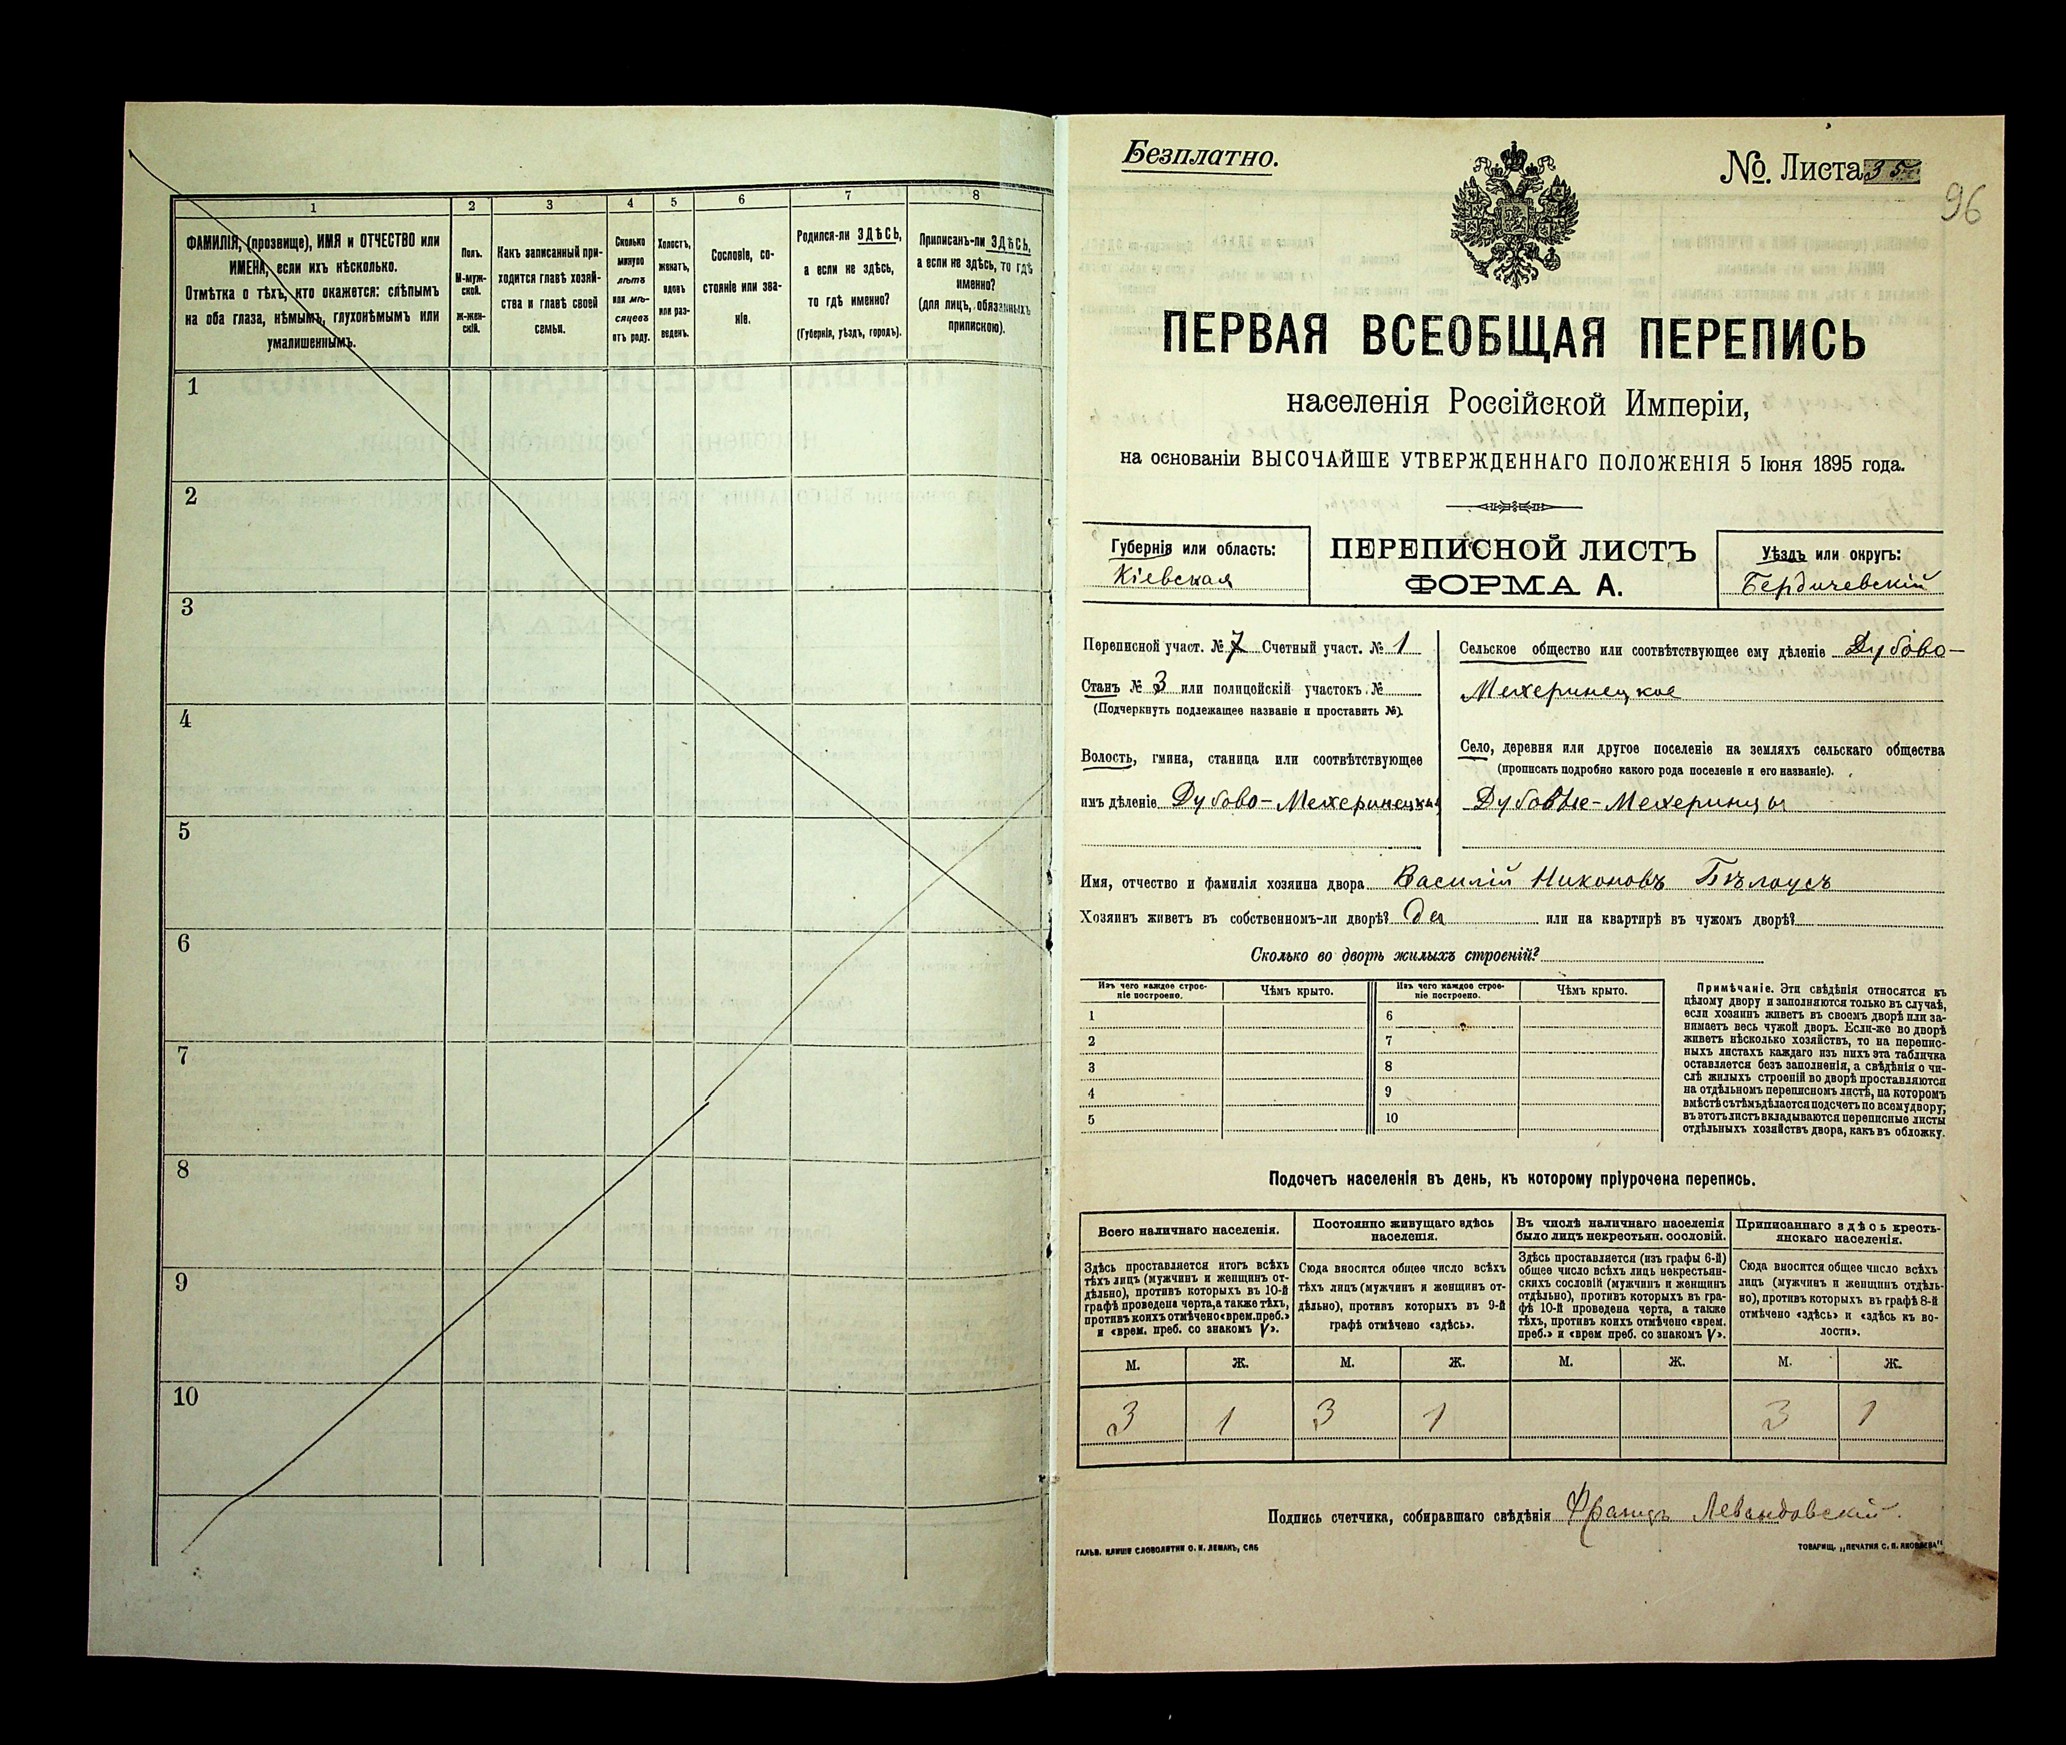 1
2
3
4
5
6
7
8
ФАМИЛІЯ, (прозвище), ИМЯ и ОТЧЕСТВО или
ИМЕНА, если ихъ нѣсколько.
Отмѣтка о тѣхъ, кто окажется: слѣпымъ
на оба глаза, нѣмымъ, глухонѣмымъ или
умалишеннымъ.
Полъ.
М-муж-
ской.
ж-жен-
скій.
Какъ записанный при-
ходится главѣ хозяй-
ства и главѣ своей
семьи.
Сколько
минуло
лѣтъ
или мѣ-
сяцевъ
отъ роду.
Холостъ,
женатъ,
вдовъ
или раз-
веденъ.
Сословіе, со-
стояніе или зва-
ніе.
Родился-ли ЗДѢСЬ,
а если не здѣсь,
то гдѣ именно?
(Губернія, уѣздъ, городъ).
Приписанъ-ли ЗДѢСЬ,
а если не здѣсь, то гдѣ
именно?
(для лицъ, обязанныхъ
припискою).
1
2
3
4
5
6
7
8
9
10
Безплатно.
№. Листа 35
96
ПЕРВАЯ ВСЕОБЩАЯ ПЕРЕПИСЬ
населенія Россійской Имперіи,
на основаніи ВЫСОЧАЙШЕ УТВЕРЖДЕННАГО ПОЛОЖЕНІЯ 5 Іюня 1895 года.
Губернія или область:
Кіевская
ПЕРЕПИСНОЙ ЛИСТЪ
ФОРМА А.
Уѣздъ или округъ:
Бердичевскій
Переписной участ. № 7 Счетный участ. № 1
Станъ № 3 или полицейскій участокъ №
(Подчеркнуть подлежащее названіе и проставить №).
Волость, гмина, станица или соотвѣтствующее
имъ дѣленіе Дубово-Мехеринецкая
Сельское общество или соотвѣтствующее ему дѣленіе Дубово-
Мехеринецкое
Село, деревня или другое поселеніе на земляхъ сельскаго общества
(прописать подробно какого рода поселеніе и его названіе).
Дубовые-Мехеринцы
Имя, отчество и фамилія хозяина двора Василій Никоновъ Бѣлоусъ
Хозяинъ живетъ въ собственномъ-ли дворѣ? да или на квартирѣ въ чужомъ дворѣ?
Сколько во дворѣ жилыхъ строеній?
Изъ чего каждое строе-
ніе построено.
Чѣмъ крыто.
Изъ чего каждое строе-
ніе построено.
Чѣмъ крыто.
1
2
3
4
5
6
7
8
9
10
Примѣчаніе. Эти свѣдѣнія относятся къ
цѣлому двору и заполняются только въ случаѣ,
если хозяинъ живетъ въ своемъ дворѣ или за-
нимаетъ весь чужой дворъ. Если-же во дворѣ
живетъ нѣсколько хозяйствъ, то на перепис-
ныхъ листахъ каждаго изъ нихъ эта табличка
оставляется безъ заполненія, а свѣдѣнія о чи-
слѣ жилыхъ строеній во дворѣ проставляются
на отдѣльномъ переписномъ листѣ, на которомъ
вмѣстѣ съ тѣмъ дѣлается подсчетъ по всему двору;
въ этотъ листъ вкладываются переписные листы
отдѣльныхъ хозяйствъ двора, какъ въ обложку.
Подсчетъ населенія въ день, къ которому пріурочена перепись.
Всего наличнаго населенія.
Постоянно живущаго здѣсь
населенія.
Въ числѣ наличнаго населенія
было лицъ некрестьян. сословій.
Приписаннаго здѣсь кресть-
янскаго населенія.
Здѣсь проставляется итогъ всѣхъ
тѣхъ лицъ (мужчинъ и женщинъ от-
дѣльно), противъ которыхъ въ 10-й
графѣ проведена черта, а также тѣхъ,
противъ коихъ отмѣчено «врем. преб.»
и «врем. преб. со знакомъ V».
Сюда вносится общее число всѣхъ
тѣхъ лицъ (мужчинъ и женщинъ от-
дѣльно), противъ которыхъ въ 9-й
графѣ отмѣчено «здѣсь».
Здѣсь проставляется (изъ графы 6-й)
общее число всѣхъ лицъ некрестьян-
скихъ сословій (мужчинъ и женщинъ
отдѣльно), противъ которыхъ въ гра-
фѣ 10-й проведена черта, а также
тѣхъ, противъ коихъ отмѣчено «врем.
преб.» и «врем преб. со знакомъ V».
Сюда вносится общее число всѣхъ
лицъ (мужчинъ и женщинъ отдѣль-
но), противъ которыхъ въ графѣ 8-й
отмѣчено «здѣсь» и «здѣсь къ во-
лости».
М. Ж. М. Ж. М. Ж. М. Ж.
3 1 3 1 3 1
Подпись счетчика, собиравшаго свѣдѣнія Францъ Левандовскій.
ГАЛЬВ. КЛИШЕ СЛОВОЛИТНИ О. И. ЛЕМАНЪ, СПБ
ТОВАРИЩ. „ПЕЧАТНЯ С. П. ЯКОВЛЕВА"